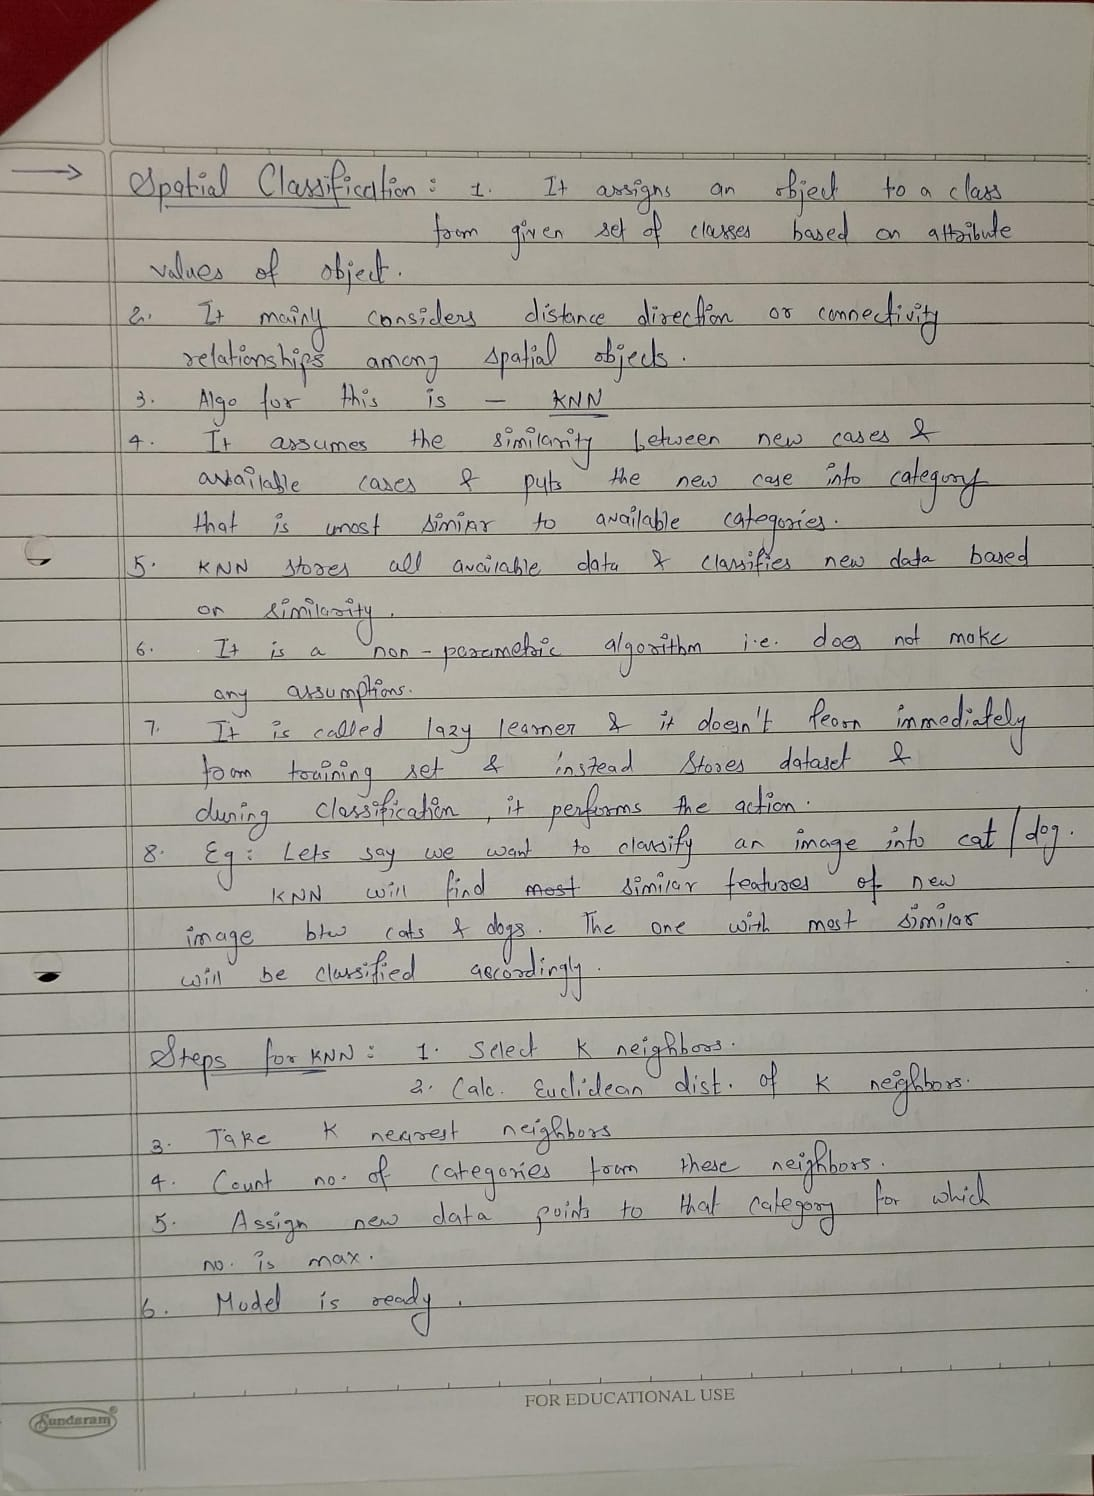 → Spatial Classification : 1. It assigns an object to a class
from given set of classes based on attribute
values of object.
2. It mainly considers distance direction or connectivity
relationships among spatial objects.
3. Algo for this is — KNN
4. It assumes the similarity between new cases &
available cases & puts the new case into category
that is most similar to available categories.
5. KNN stores all available data & classifies new data based
on similarity.
6. It is a non-parametric algorithm i.e. does not make
any assumptions.
7. It is called lazy learner & it doesn't learn immediately
from training set & instead stores dataset &
during classification, it performs the action.
8. Eg: Lets say we want to classify an image into cat/dog.
KNN will find most similar features of new
image btw cats & dogs. The one with most similar
will be classified accordingly.
Steps for KNN : 1. Select K neighbors.
2. Calc. Euclidean dist. of K neighbors.
3. Take K nearest neighbors
4. Count no. of categories from these neighbors.
5. Assign new data points to that category for which
no. is max.
6. Model is ready.
FOR EDUCATIONAL USE
Sundaram®